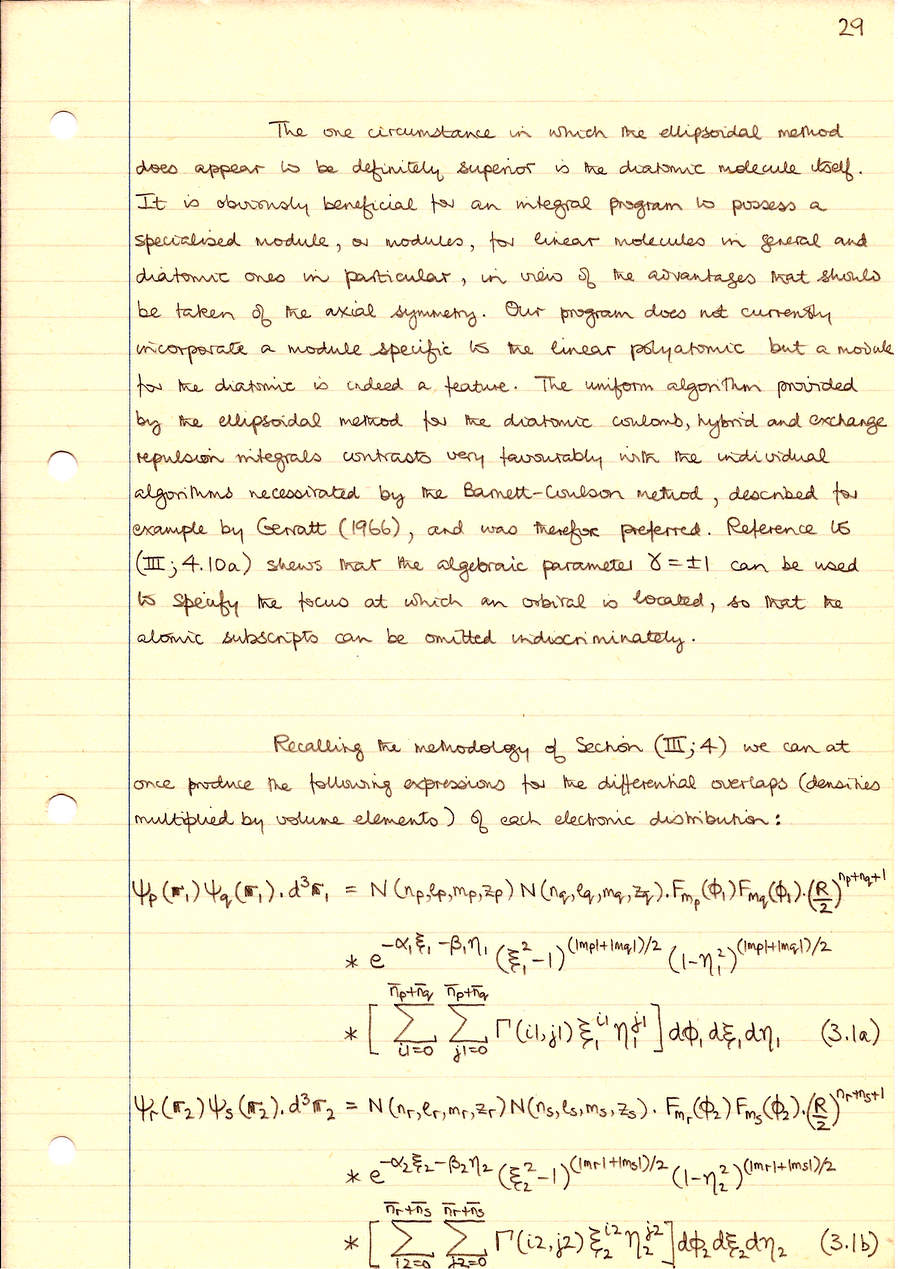 29
The one circumstance in which the ellipsoidal method
does appear to be definitely superior is the diatomic molecule itself.
It is obviously beneficial for an integral program to possess a
specialised module, or modules, for linear molecules in general and
diatomic ones in particular, in view of the advantages that should
be taken of the axial symmetry. Our program does not currently
incorporate a module specific to the linear polyatomic but a module
for the diatomic is indeed a feature. The uniform algorithm provided
by the ellipsoidal method for the diatomic coulomb, hybrid and exchange
repulsion integrals contrasts very favourably with the individual
algorithms necessitated by the Barnett-Coulson method, described for
example by Gerratt (1966), and was therefor preferred. Reference to
(III; 4.10a) shews that the algebraic parameter γ = ±1 can be used
to specify the focus at which an orbital is located, so that the
atomic subscripts can be omitted indiscriminately.
Recalling the methodology of Section (III; 4) we can at
once produce the following expressions for the differential overlaps (densities
multiplied by volume elements) of each electronic distribution:
ψp(r₁)ψq(r₁).d³r₁ = N(np,ℓp,mp,zp) N(nq,ℓq,mq,zq).F_mp(φ₁)F_mq(φ₁).(R/2)^(np+nq+1)
* e^(-α₁ξ₁-β₁η₁) (ξ₁²-1)^((|mp|+|mq|)/2) (1-η₁²)^((|mp|+|mq|)/2)
* [ Σ_(i1=0)^(n̄p+n̄q) Σ_(j1=0)^(n̄p+n̄q) Γ(i1,j1) ξ₁^i1 η₁^j1 ] dφ₁ dξ₁ dη₁ (3.1a)
ψr(r₂)ψs(r₂).d³r₂ = N(nr,ℓr,mr,zr) N(ns,ℓs,ms,zs).F_mr(φ₂)F_ms(φ₂).(R/2)^(nr+ns+1)
* e^(-α₂ξ₂-β₂η₂) (ξ₂²-1)^((|mr|+|ms|)/2) (1-η₂²)^((|mr|+|ms|)/2)
* [ Σ_(i2=0)^(n̄r+n̄s) Σ_(j2=0)^(n̄r+n̄s) Γ(i2,j2) ξ₂^i2 η₂^j2 ] dφ₂ dξ₂ dη₂ (3.1b)